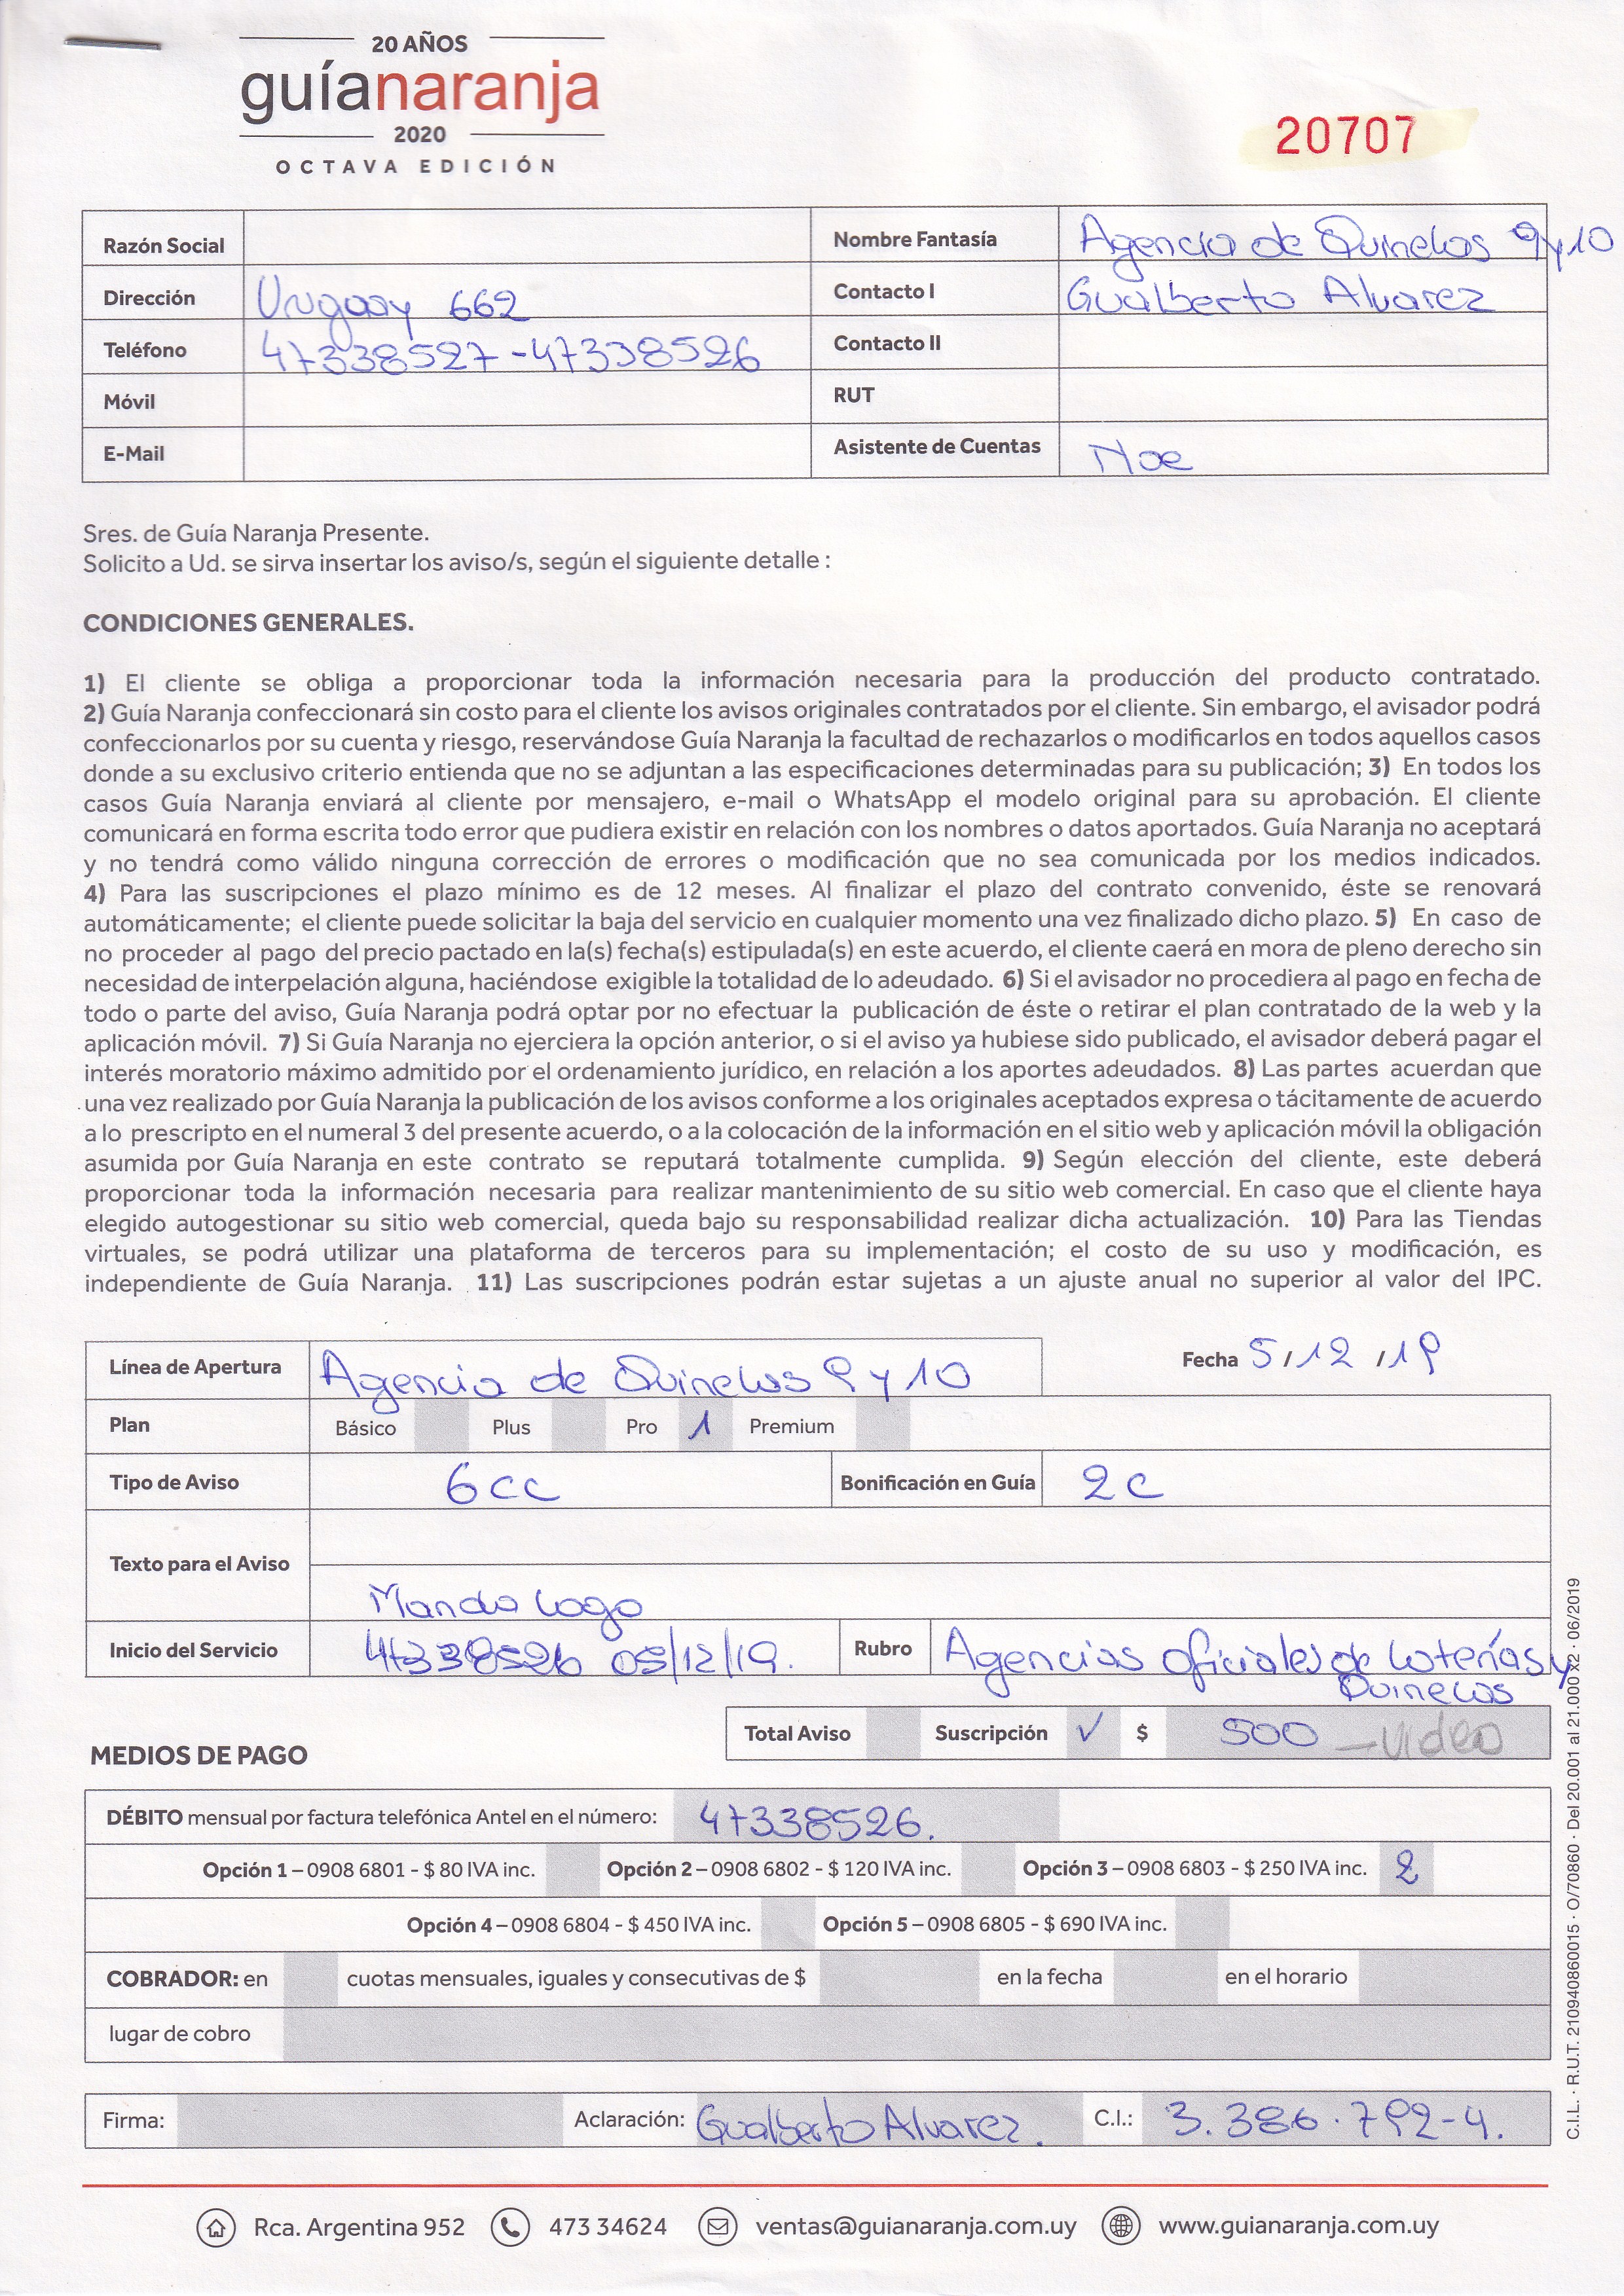 20 AÑOS
guíanaranja
2020
OCTAVA EDICIÓN
20707
Razón Social
Nombre Fantasía Agencia de Quinelas 9y10
Dirección Uruguay 662
Contacto I Gualberto Alvarez
Teléfono 47338527-47338526
Contacto II
Móvil
RUT
E-Mail
Asistente de Cuentas Noe
Sres. de Guía Naranja Presente.
Solicito a Ud. se sirva insertar los aviso/s, según el siguiente detalle :
CONDICIONES GENERALES.
1) El cliente se obliga a proporcionar toda la información necesaria para la producción del producto contratado.
2) Guía Naranja confeccionará sin costo para el cliente los avisos originales contratados por el cliente. Sin embargo, el avisador podrá
confeccionarlos por su cuenta y riesgo, reservándose Guía Naranja la facultad de rechazarlos o modificarlos en todos aquellos casos
donde a su exclusivo criterio entienda que no se adjuntan a las especificaciones determinadas para su publicación; 3) En todos los
casos Guía Naranja enviará al cliente por mensajero, e-mail o WhatsApp el modelo original para su aprobación. El cliente
comunicará en forma escrita todo error que pudiera existir en relación con los nombres o datos aportados. Guía Naranja no aceptará
y no tendrá como válido ninguna corrección de errores o modificación que no sea comunicada por los medios indicados.
4) Para las suscripciones el plazo mínimo es de 12 meses. Al finalizar el plazo del contrato convenido, éste se renovará
automáticamente; el cliente puede solicitar la baja del servicio en cualquier momento una vez finalizado dicho plazo. 5) En caso de
no proceder al pago del precio pactado en la(s) fecha(s) estipulada(s) en este acuerdo, el cliente caerá en mora de pleno derecho sin
necesidad de interpelación alguna, haciéndose exigible la totalidad de lo adeudado. 6) Si el avisador no procediera al pago en fecha de
todo o parte del aviso, Guía Naranja podrá optar por no efectuar la publicación de éste o retirar el plan contratado de la web y la
aplicación móvil. 7) Si Guía Naranja no ejerciera la opción anterior, o si el aviso ya hubiese sido publicado, el avisador deberá pagar el
interés moratorio máximo admitido por el ordenamiento jurídico, en relación a los aportes adeudados. 8) Las partes acuerdan que
una vez realizado por Guía Naranja la publicación de los avisos conforme a los originales aceptados expresa o tácitamente de acuerdo
a lo prescripto en el numeral 3 del presente acuerdo, o a la colocación de la información en el sitio web y aplicación móvil la obligación
asumida por Guía Naranja en este contrato se reputará totalmente cumplida. 9) Según elección del cliente, este deberá
proporcionar toda la información necesaria para realizar mantenimiento de su sitio web comercial. En caso que el cliente haya
elegido autogestionar su sitio web comercial, queda bajo su responsabilidad realizar dicha actualización. 10) Para las Tiendas
virtuales, se podrá utilizar una plataforma de terceros para su implementación; el costo de su uso y modificación, es
independiente de Guía Naranja. 11) Las suscripciones podrán estar sujetas a un ajuste anual no superior al valor del IPC.
Línea de Apertura Agencia de Quinelas 9 y 10
Fecha 5/12/19
Plan Básico Plus Pro 1 Premium
Tipo de Aviso 6cc Bonificación en Guía 2c
Texto para el Aviso
Manda logo
Inicio del Servicio 47338526 05/12/19. Rubro Agencias oficiales de loterías y
Quinelas
Total Aviso Suscripción ✓ $ 500 - video
MEDIOS DE PAGO
DÉBITO mensual por factura telefónica Antel en el número: 47338526.
Opción 1 – 0908 6801 - $ 80 IVA inc. Opción 2 – 0908 6802 - $ 120 IVA inc. Opción 3 – 0908 6803 - $ 250 IVA inc. 2
Opción 4 – 0908 6804 - $ 450 IVA inc. Opción 5 – 0908 6805 - $ 690 IVA inc.
COBRADOR: en cuotas mensuales, iguales y consecutivas de $ en la fecha en el horario
lugar de cobro
Firma: Aclaración: Gualberto Alvarez. C.I.: 3.386.792-4.
C.I.L. · R.U.T. 210940860015 · O/70860 · Del 20.001 al 21.000 x2 · 06/2019
Rca. Argentina 952 473 34624 ventas@guianaranja.com.uy www.guianaranja.com.uy